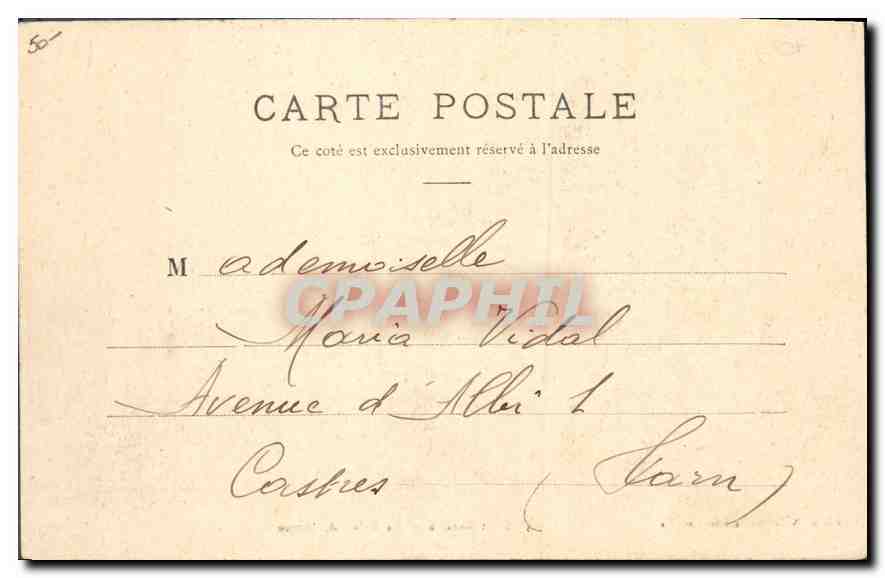 50-
CARTE POSTALE
Ce coté est exclusivement réservé à l'adresse
Mademoiselle
CPAPHIL
Maria Vidal
Avenue d'Albi 1
Castres (Tarn)